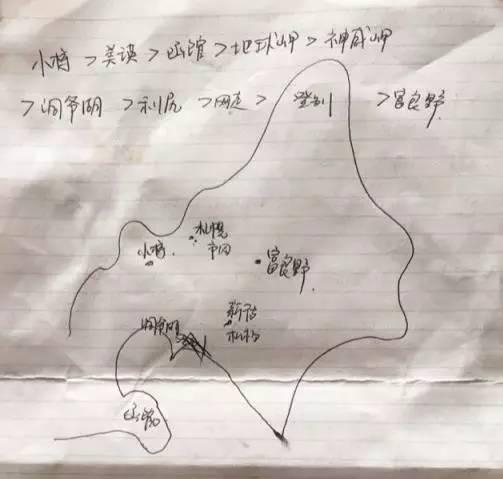 小樽 > 美瑛 > 函馆 > 地球岬 > 神威岬
> 洞爷湖 > 利尻 > 网走 > 登别 > 富良野
小樽
札幌
市内
富良野
新千
洞爷湖
函馆